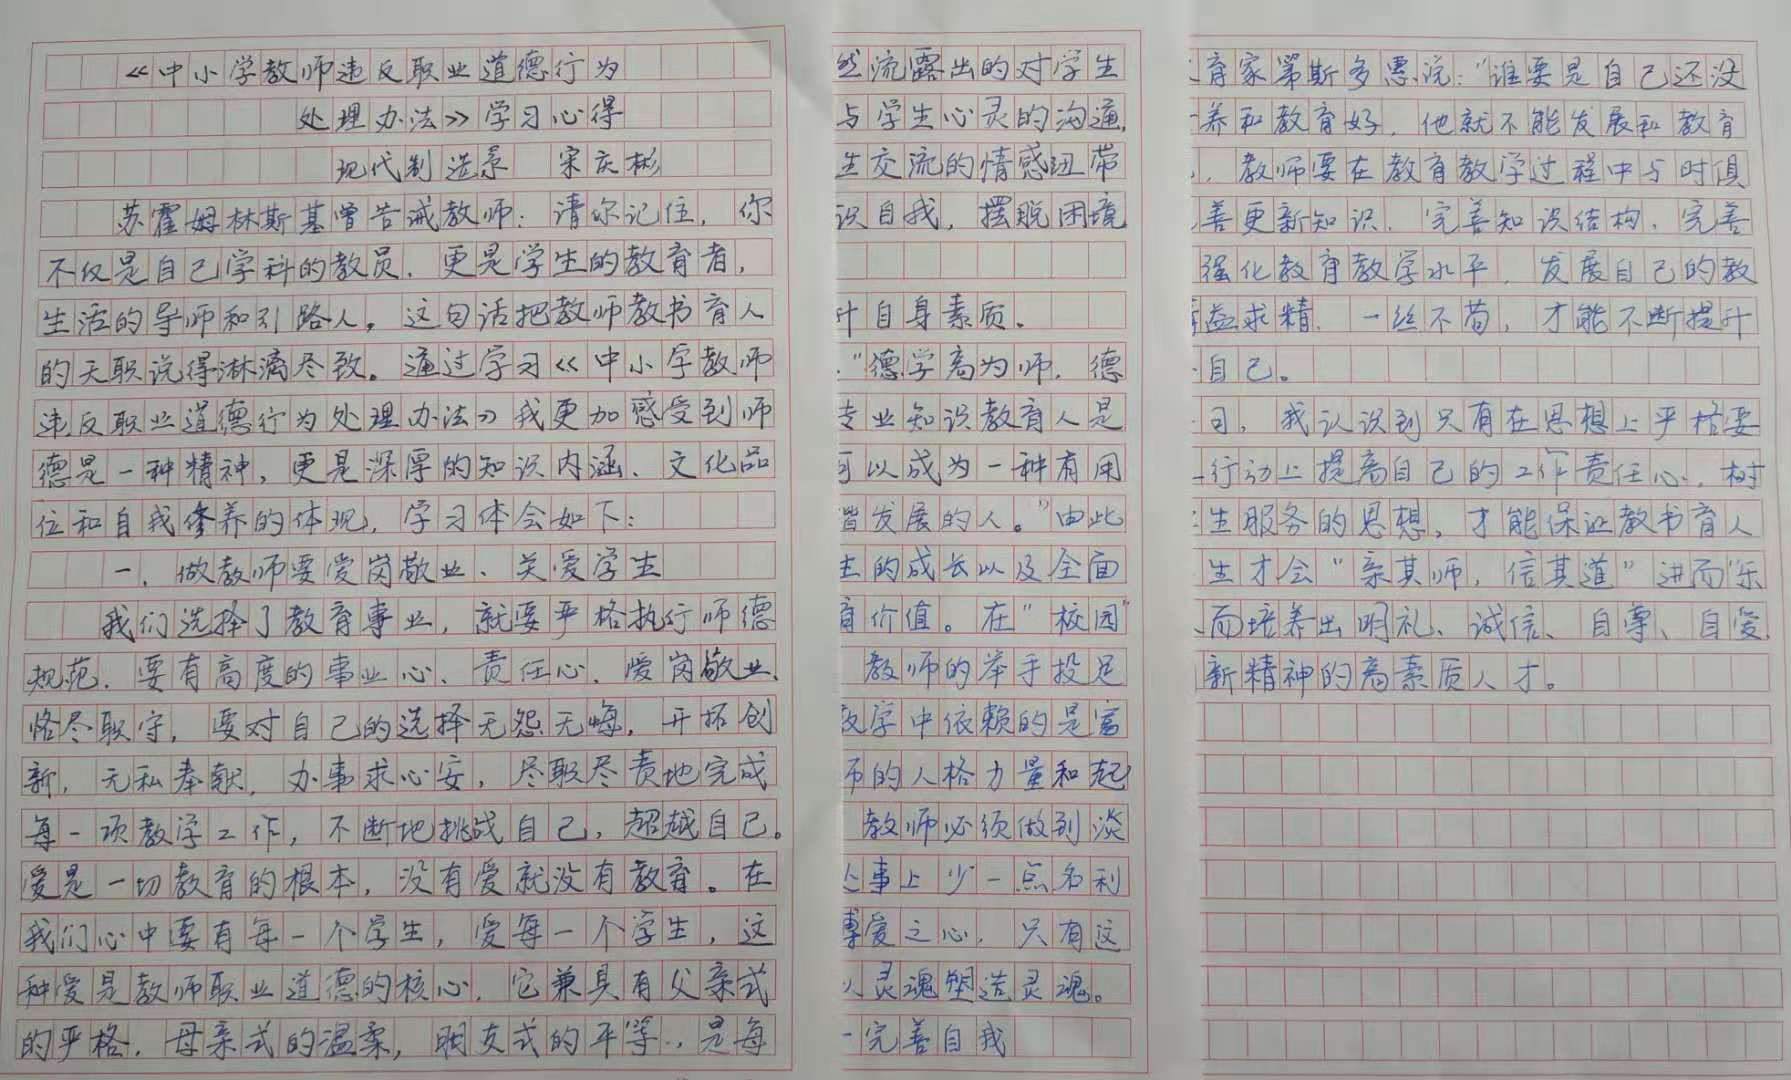 《中小学教师违反职业道德行为
处理办法》学习心得
现代制造系 宋庆彬
苏霍姆林斯基曾告诫教师：请你记住，你
不仅是自己学科的教员，更是学生的教育者，
生活的导师和引路人。这句话把教师教书育人
的天职说得淋漓尽致。通过学习《中小学教师
违反职业道德行为处理办法》我更加感受到师
德是一种精神，更是深厚的知识内涵、文化品
位和自我修养的体现，学习体会如下：
一、做教师要爱岗敬业、关爱学生
我们选择了教育事业，就要严格执行师德
规范，要有高度的事业心、责任心，爱岗敬业、
恪尽职守，要对自己的选择无怨无悔，开拓创
新，无私奉献，办事求心安，尽职尽责地完成
每一项教学工作，不断地挑战自己，超越自己。
爱是一切教育的根本，没有爱就没有教育。在
我们心中要有每一个学生，爱每一个学生，这
种爱是教师职业道德的核心，它兼具有父亲式
的严格，母亲式的温柔，朋友式的平等，是每
然流露出的对学生
与学生心灵的沟通，
生交流的情感纽带
识自我，摆脱困境
升自身素质。
“德学高为师，德
专业知识教育人是
可以成为一种有用
谐发展的人。”由此
生的成长以及全面
育价值。在“校园”
教师的举手投足
教学中依赖的是富
师的人格力量和起
教师必须做到淡
事上少一点名利
博爱之心，只有这
灵魂塑造灵魂。
完善自我
育家第斯多惠说：“谁要是自己还没
养和教育好，他就不能发展和教育
，教师要在教育教学过程中与时俱
善更新知识，完善知识结构，完善
强化教育教学水平，发展自己的教
益求精，一丝不苟，才能不断提升
自己。
习，我认识到只有在思想上严格要
行动上提高自己的工作责任心，树
生服务的思想，才能保证教书育人
生才会“亲其师，信其道”进而“乐
而培养出明礼、诚信、自尊、自爱、
新精神的高素质人才。